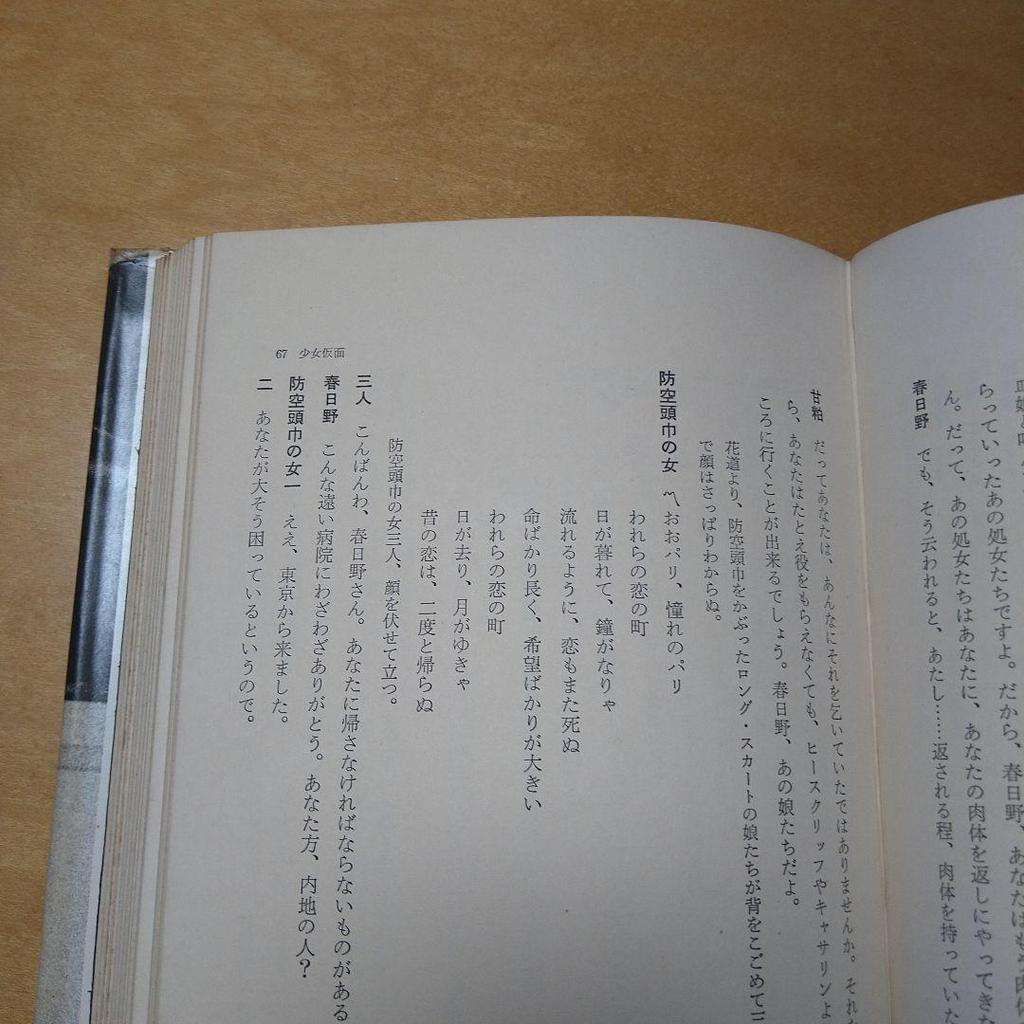 らっていったあの処女たちですよ。だから、春日野、あなたはもう肉体
ん。だって、あの処女たちはあなたに、あなたの肉体を返しにやってきた
春日野　でも、そう云われると、あたし……返される程、肉体を持っていた
甘粕　だってあなたは、あんなにそれを乞いていたではありませんか。それ
ら、あなたはたとえ役をもらえなくても、ヒースクリッフやキャサリンよ
ころに行くことが出来るでしょう。春日野、あの娘たちだよ。
花道より、防空頭巾をかぶったロング・スカートの娘たちが背をこごめて三
で顔はさっぱりわからぬ。
防空頭巾の女　〽おおパリ、憧れのパリ
われらの恋の町
日が暮れて、鐘がなりゃ
流れるように、恋もまた死ぬ
命ばかり長く、希望ばかりが大きい
われらの恋の町
日が去り、月がゆきゃ
昔の恋は、二度と帰らぬ
防空頭巾の女三人、顔を伏せて立つ。
三人　こんばんわ、春日野さん。あなたに帰さなければならないものがある
春日野　こんな遠い病院にわざわざありがとう。あなた方、内地の人？
防空頭巾の女一　ええ、東京から来ました。
二　あなたが大そう困っているというので。
67　少女仮面